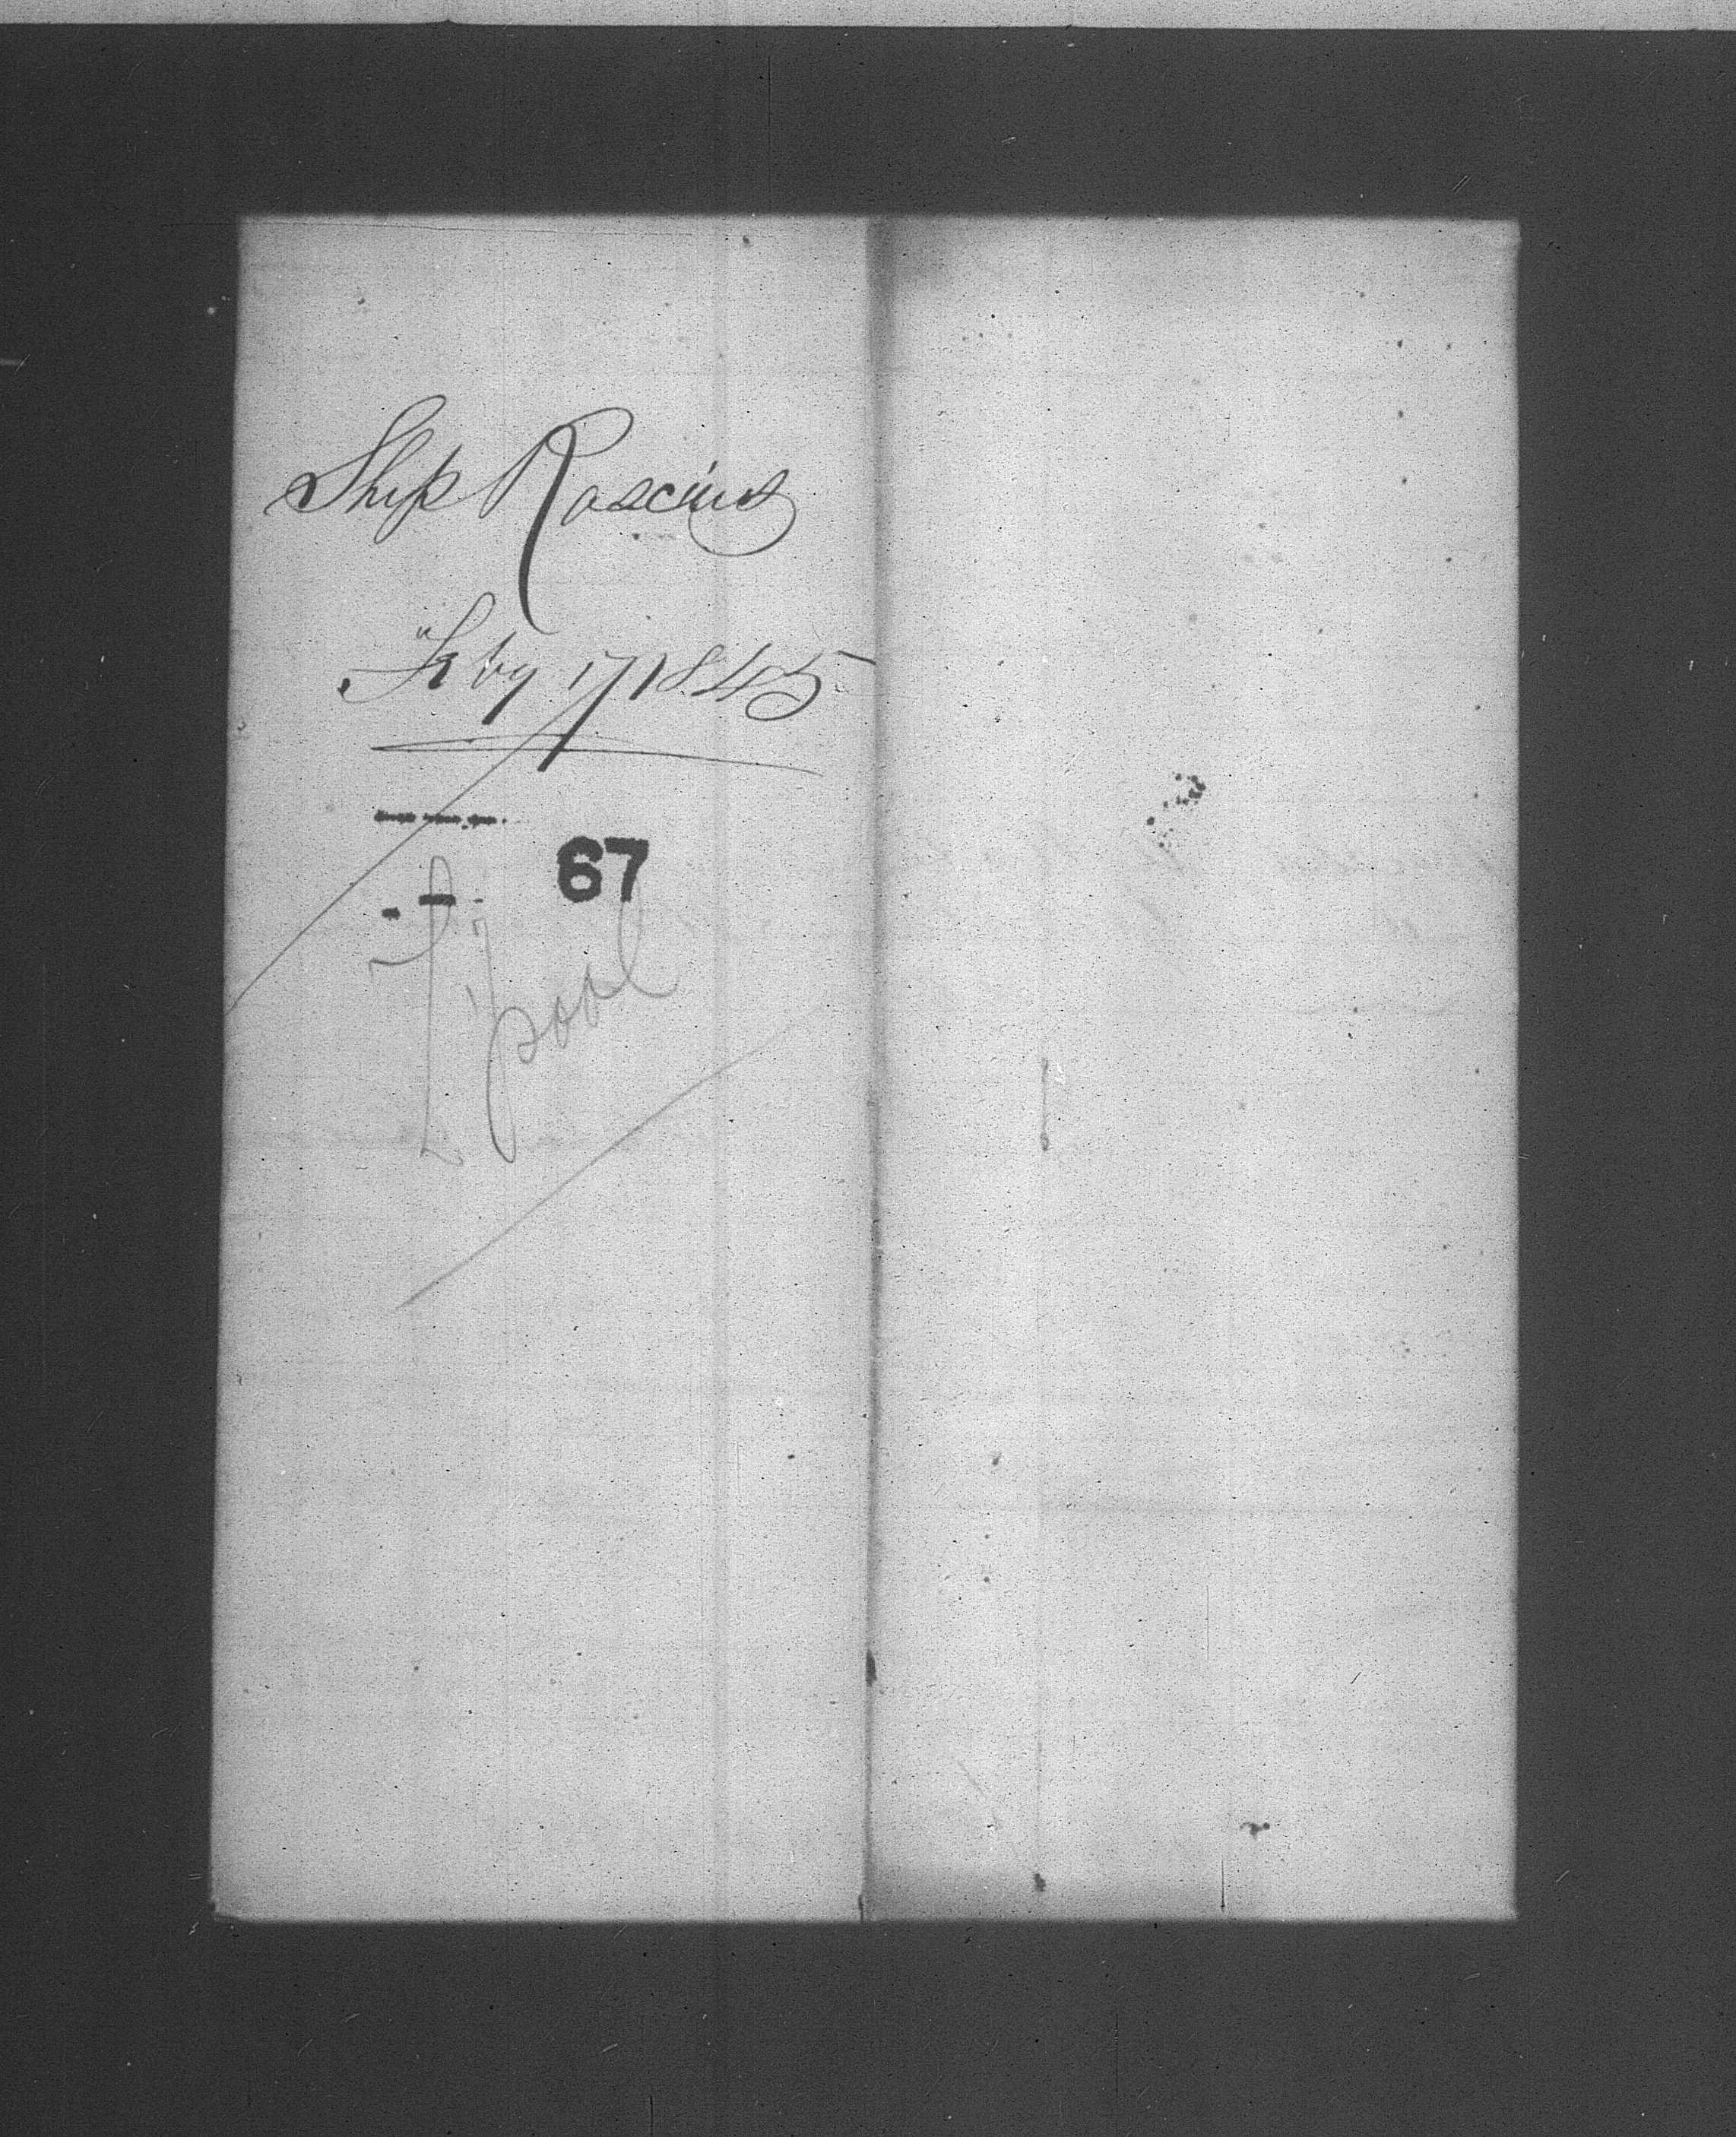 Ship Roscius
Feby 17 1845
67
L'pool